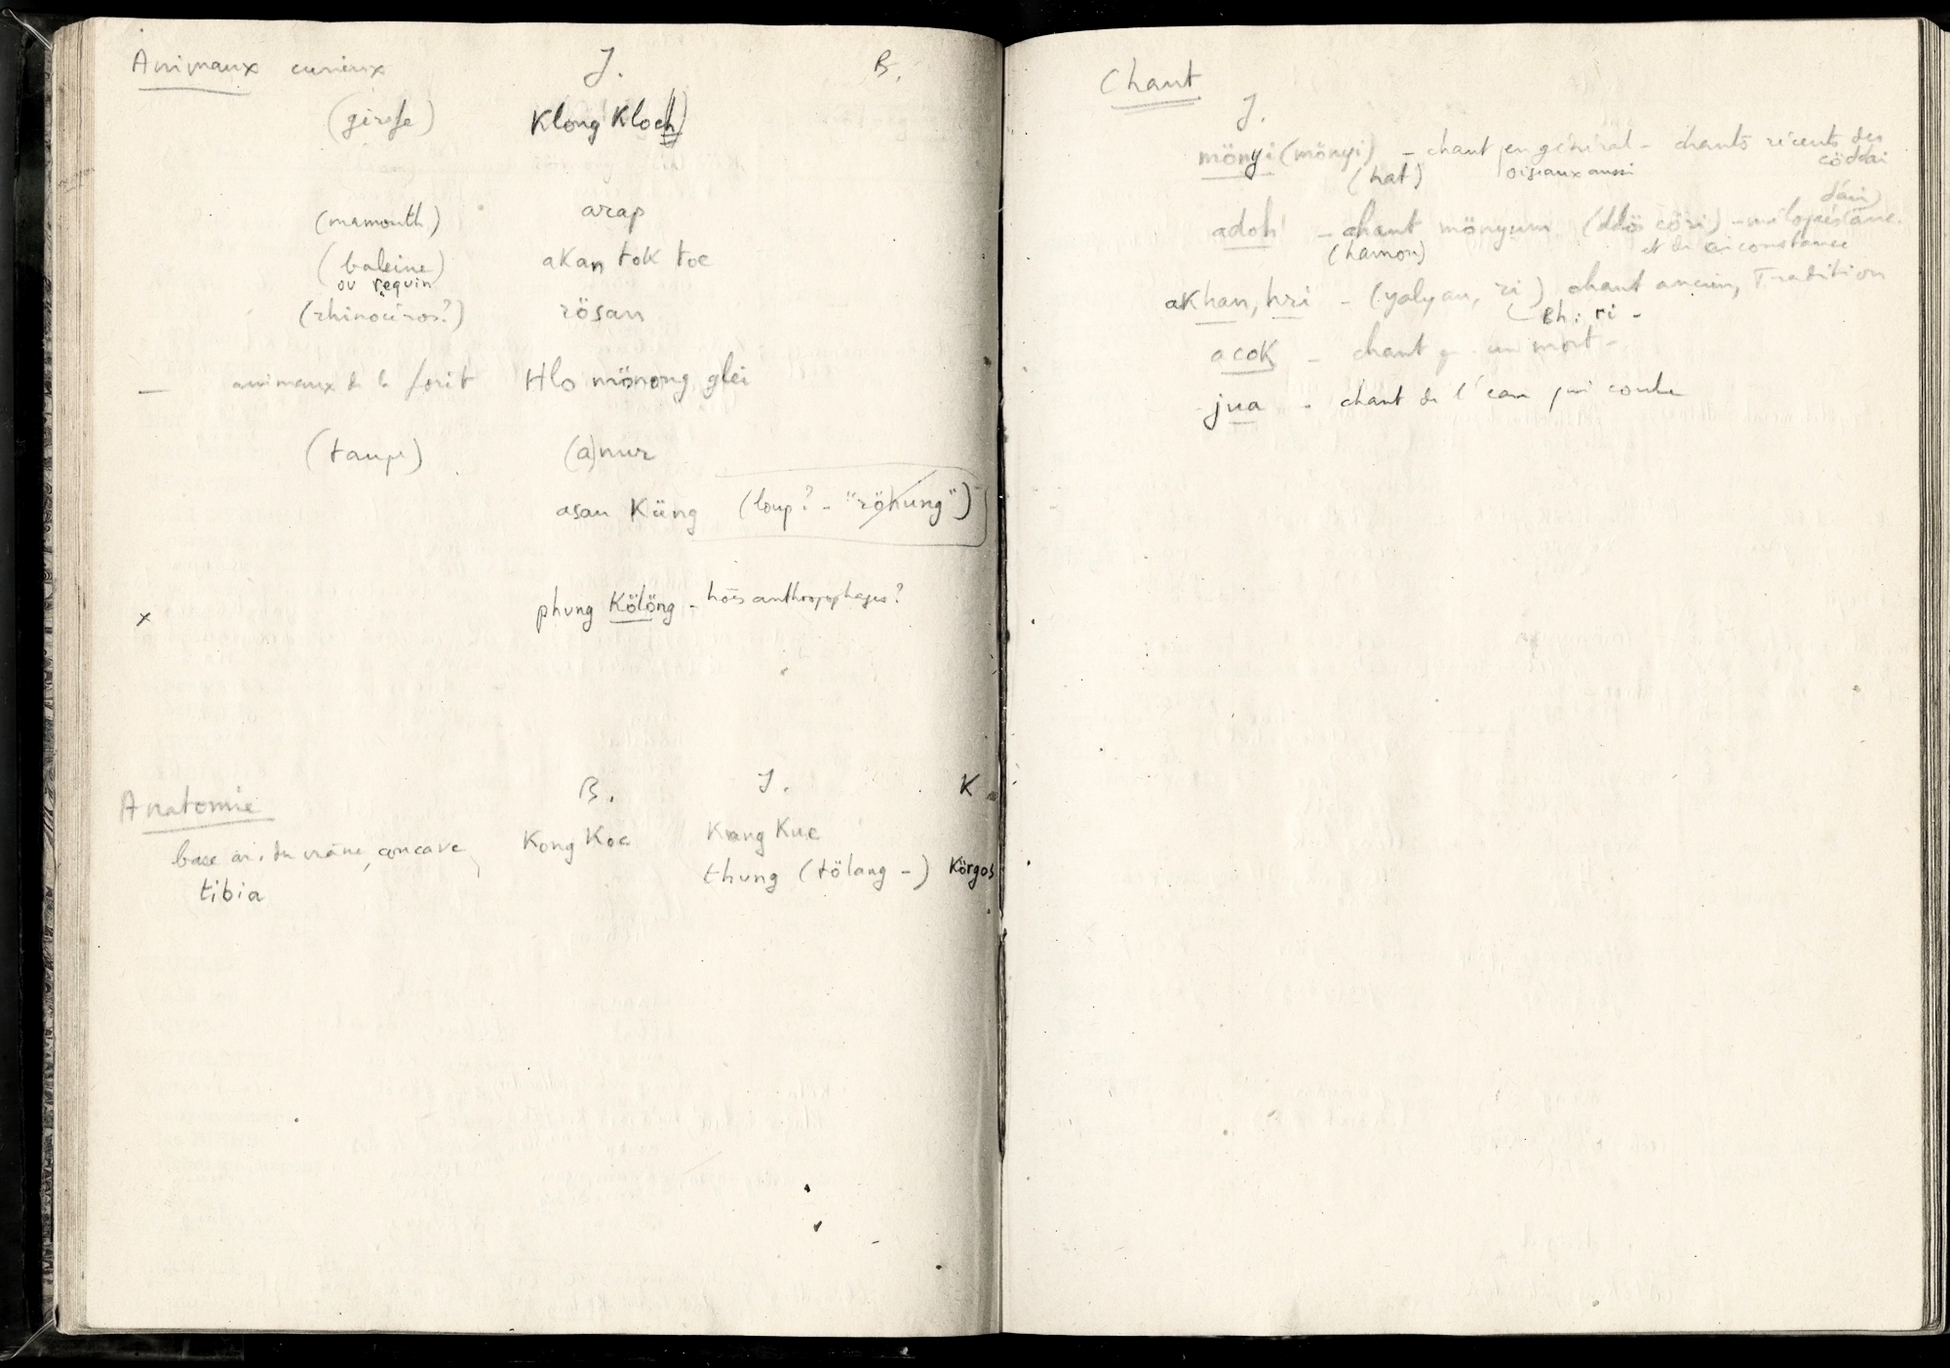 Animaux curieux J. B.
(girafe) Klong Kloch
(mamouth) arap
(baleine) akan tok toc
ou requin
(rhinocéros?) rösan
— animaux de la forêt Hlo mönong glei
(taupe) (a)nur
asau Küng (loup? - "röhung")
x phung Kölöng - hoēs anthropophages?
Anatomie B. J. K
base du crâne, concave Kong Koc Kuang Kuc
tibia thung (tölang -) Körgos
Chant
J.
mönyi (mönyi) - chant en général - chants récents des cöddai
(hat) oiseaux aussi
adoh - chant mönyum (ddö cöri)
(hamon) et de circonstance
akhan, hri - (yalyau, ri) chant ancien, Tradition
Bh: ri -
acok - chant un mort -
jua - chant de l'eau qui coule